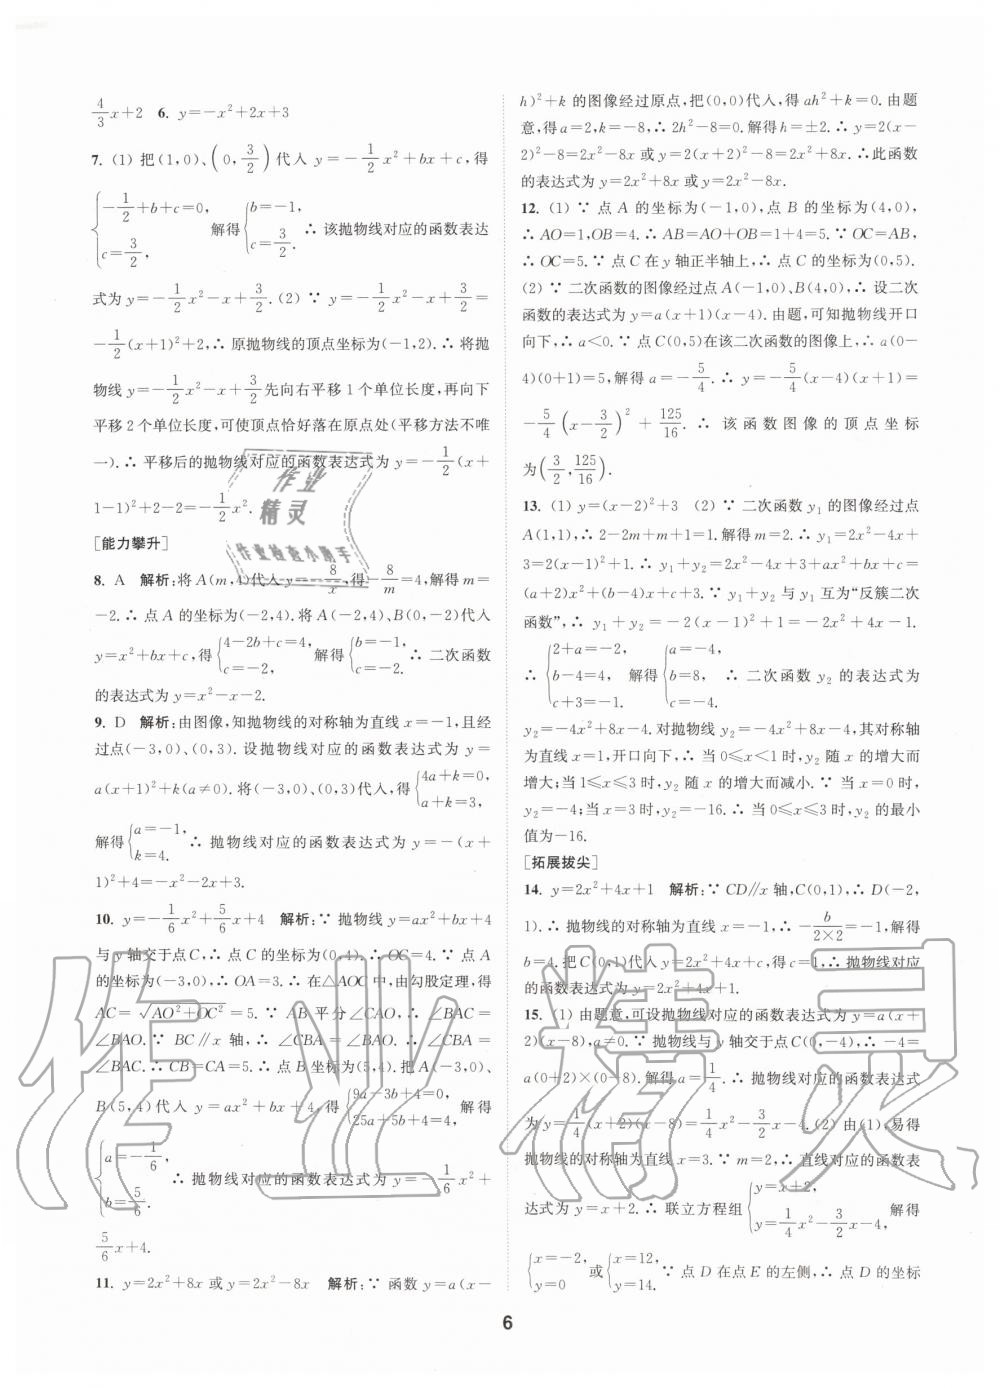 4/3 x+2  6. y=-x²+2x+3
7. (1) 把(1,0)、(0,3/2)代入 y=-1/2 x²+bx+c,得
{-1/2+b+c=0, c=3/2, 解得{b=-1, c=3/2. ∴ 该抛物线对应的函数表达
式为 y=-1/2 x²-x+3/2. (2) ∵ y=-1/2 x²-x+3/2=
-1/2(x+1)²+2,∴ 原抛物线的顶点坐标为(-1,2).∴ 将抛
物线 y=-1/2 x²-x+3/2先向右平移 1 个单位长度,再向下
平移 2 个单位长度,可使顶点恰好落在原点处(平移方法不唯
一).∴ 平移后的抛物线对应的函数表达式为 y=-1/2(x+
1-1)²+2-2=-1/2 x².
[能力攀升]
8. A 解析:将 A(m,4)代入 y=-8/x,得-8/m=4,解得 m=
-2.∴ 点 A 的坐标为(-2,4).将 A(-2,4)、B(0,-2)代入
y=x²+bx+c,得{4-2b+c=4, c=-2, 解得{b=-1, c=-2. ∴ 二次函数
的表达式为 y=x²-x-2.
9. D 解析:由图像,知抛物线的对称轴为直线 x=-1,且经
过点(-3,0)、(0,3).设抛物线对应的函数表达式为 y=
a(x+1)²+k(a≠0).将(-3,0)、(0,3)代入,得{4a+k=0, a+k=3,
解得{a=-1, k=4. ∴ 抛物线对应的函数表达式为 y=-(x+
1)²+4=-x²-2x+3.
10. y=-1/6 x²+5/6 x+4 解析:∵ 抛物线 y=ax²+bx+4
与 y 轴交于点 C,∴ 点 C 的坐标为(0,4).∴ OC=4.∵ 点 A
的坐标为(-3,0),∴ OA=3.∴ 在△AOC 中,由勾股定理,得
AC=√AO²+OC²=5.∵ AB 平分∠CAO,∴ ∠CAB=
∠BAO.∵ BC∥x 轴,∴ ∠CBA=∠BAO.∴ ∠CBA=
∠BAC.∴ CB=CA=5.∴ 点 B 的坐标为(5,4).把 A(-3,0)、
B(5,4)代入 y=ax²+bx+4,得{9a-3b+4=0, 25a+5b+4=4, 解得
{a=-1/6, b=5/6. ∴ 抛物线对应的函数表达式为 y=-1/6 x²+
5/6 x+4.
11. y=2x²+8x 或 y=2x²-8x 解析:∵ 函数 y=a(x-
h)²+k 的图像经过原点,把(0,0)代入,得 ah²+k=0.由题
意,得 a=2,k=-8,∴ 2h²-8=0.解得 h=±2.∴ y=2(x-
2)²-8=2x²-8x 或 y=2(x+2)²-8=2x²+8x.∴此函数
的表达式为 y=2x²+8x 或 y=2x²-8x.
12. (1) ∵ 点 A 的坐标为(-1,0),点 B 的坐标为(4,0),
∴ AO=1,OB=4.∴ AB=AO+OB=1+4=5.∵ OC=AB,
∴ OC=5.∵ 点 C 在 y 轴正半轴上,∴ 点 C 的坐标为(0,5).
(2) ∵ 二次函数的图像经过点 A(-1,0)、B(4,0),∴ 设二次
函数的表达式为 y=a(x+1)(x-4).由题,可知抛物线开口
向下,∴ a<0.∵ 点 C(0,5)在该二次函数的图像上,∴ a(0-
4)(0+1)=5,解得 a=-5/4.∴ y=-5/4(x-4)(x+1)=
-5/4(x-3/2)²+125/16.∴ 该函数图像的顶点坐标
为(3/2,125/16).
13. (1) y=(x-2)²+3 (2) ∵ 二次函数 y₁ 的图像经过点
A(1,1),∴ 2-2m+m+1=1.解得 m=2.∴ y₁=2x²-4x+
3=2(x-1)²+1.∴ y₁+y₂=2x²-4x+3+ax²+bx+c=
(a+2)x²+(b-4)x+c+3.∵ y₁+y₂ 与 y₁ 互为“反簇二次
函数”,∴ y₁+y₂=-2(x-1)²+1=-2x²+4x-1.
∴ {2+a=-2, b-4=4, c+3=-1. 解得{a=-4, b=8, c=-4. ∴ 二次函数 y₂ 的表达式为
y₂=-4x²+8x-4.对抛物线 y₂=-4x²+8x-4,其对称轴
为直线 x=1,开口向下,∴ 当 0≤x<1 时,y₂ 随 x 的增大而
增大;当 1≤x≤3 时,y₂ 随 x 的增大而减小.∵ 当 x=0 时,
y₂=-4;当 x=3 时,y₂=-16.∴ 当 0≤x≤3 时,y₂ 的最小
值为-16.
[拓展拔尖]
14. y=2x²+4x+1 解析:∵ CD∥x 轴,C(0,1),∴ D(-2,
1).∴ 抛物线的对称轴为直线 x=-1,∴ -b/2×2=-1.解得
b=4.把 C(0,1)代入 y=2x²+4x+c,得 c=1,∴ 抛物线对应
的函数表达式为 y=2x²+4x+1.
15. (1) 由题意,可设抛物线对应的函数表达式为 y=a(x+
2)(x-8),a≠0.∵ 抛物线与 y 轴交于点 C(0,-4),∴ -4=
a(0+2)×(0-8).解得 a=1/4.∴ 抛物线对应的函数表达式
为 y=1/4(x+2)(x-8)=1/4 x²-3/2 x-4.(2) 由(1),易得
抛物线的对称轴为直线 x=3.∵ m=2,∴ 直线对应的函数表
达式为 y=x+2.∴ 联立方程组{y=x+2, y=1/4 x²-3/2 x-4, 解得
{x=-2, y=0 或{x=12, y=14. ∵ 点 D 在点 E 的左侧,∴ 点 D 的坐标
6
作业
精灵
作业检查小助手
作业精灵